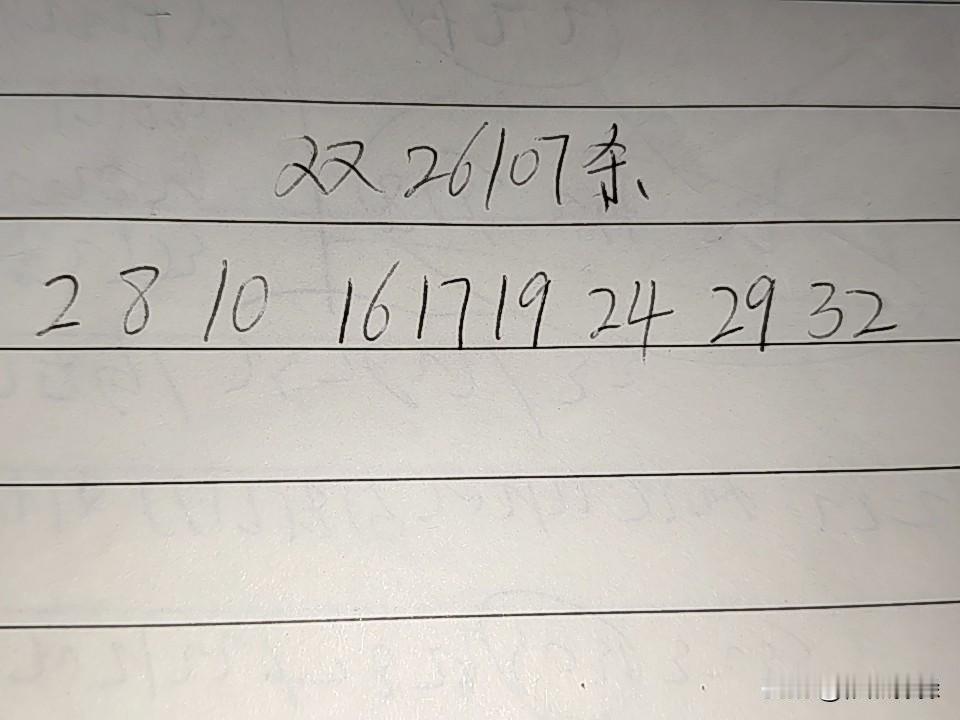 双 26107 杀
2 8 10 16 17 19 24 29 32